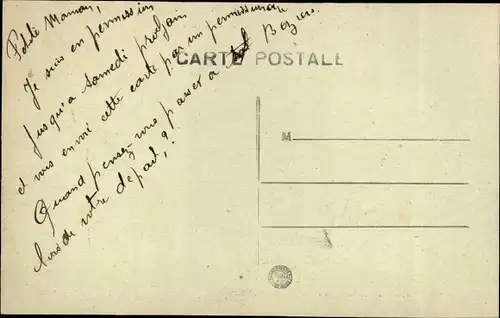 Petite Maman,
Je suis en permission
jusqu'à samedi prochain
et vous envoie cette carte par un permissionnaire
Quand pensez-vous passer à Beziers
lors de votre depart ?
CARTE POSTALE
M